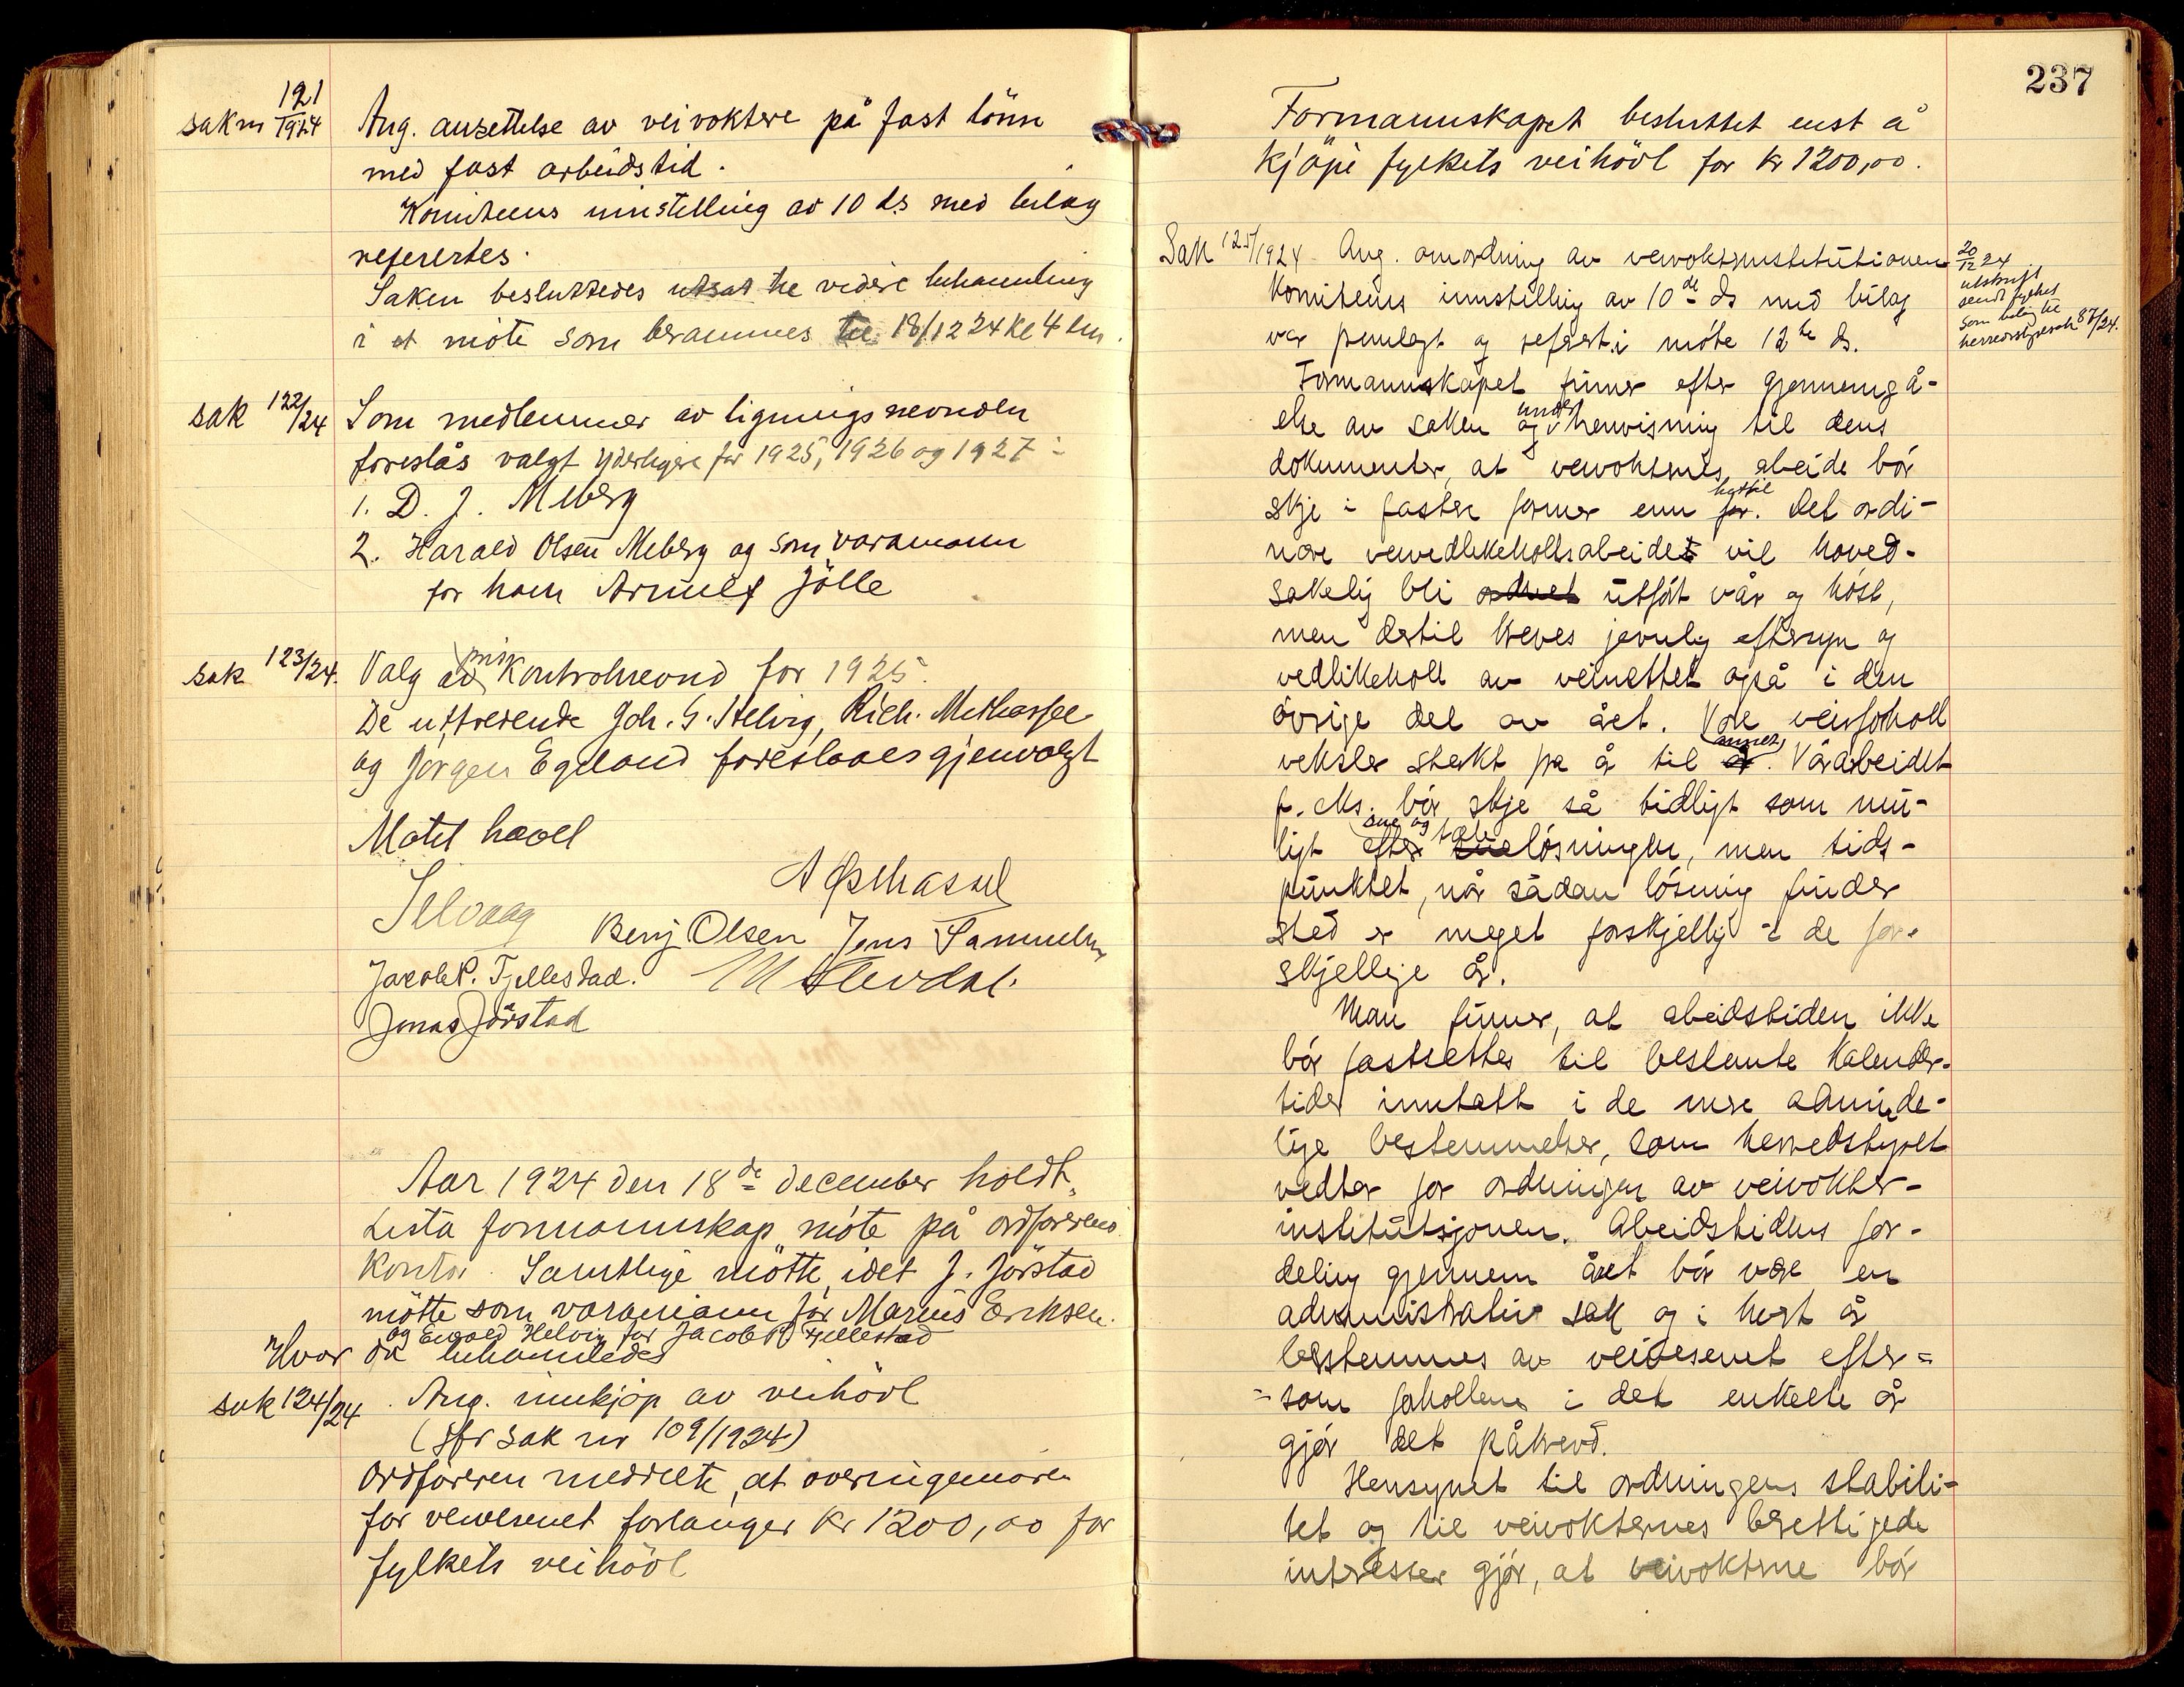 sak nr 121/1924 Ang. ansettelse av veivoktere på fast lönn
med fast arbeidstid.
Komiteens innstilling av 10 ds med bilag
referertes.
Saken besluttedes utsat til videre behandling
i et möte som berammes til 18/12 24 kl 4 em.
sak 122/24 Som medlemmer av ligningsnevnden
foreslås valgt yderligere for 1925, 1926 og 1927:
1. D. J. Meberg
2. Harald Olsen Meberg og som varamann
for ham Arnulf Jölle
sak 123/24. Valg av priskontrolnevnd for 1925.
De uttredende Joh. G. Stelvig, Rich. Mathassel
og Jörgen Egeland foreslaaes gjenvalgt
Motet hævet
Selvaag
Benj Olsen Jens Samuelsen
Jacob R. Tjellestad.
Jonas Jörstad
Aar 1924 den 18de december holdt
Lista formannskap möte på ordförerens
kontor. Samtlige mötte, idet J. Jörstad
mötte som varamann for Marius Eriksen.
og Ewald Helvig for Jacob R Tjellestad
Hvor da behandledes
sak 124/24 Ang. innkjöp av veihövl
(Jfr sak nr 109/1924)
Ordföreren meddelte, at overingeniören
for veivesenet forlanger kr 1200,00 for
fylkets veihövl
237
Formannskapet besluttet enst å
kjöpe fylkets veihövl for kr 1200,00.
Sak 125/1924 Ang. omordning av veivokterinstitutionen
Komiteens innstilling av 10de ds med bilag
var fremlagt og referert i möte 12te ds.
20/12 24
utskrift
sendt fylket
som bilag til
herredsstyresak 87/24.
Formannskapet finner efter gjennemgå-
else av saken og under henvisning til dens
dokumenter, at veivokternes arbeide bör
skje i fastere former enn hittil for. Det ordi-
nære veivedlikeholdsarbeidet vil hoved-
sakelig bli ordnet utfört vår og höst,
men dertil kreves jevnlig eftersyn og
vedlikehold av veinettet også i den
övrige del av året. Våre veirforhold
veksler sterkt fra år til annet år. Vårarbeidet
f. eks. bör skje så tidligt som mu-
ligt efter sne og tele lösningen, men tids-
punktet, når sådan lösning finder
sted er meget forskjellig i de for-
skjellige år.
Man finner, at arbeidstiden ikke
bör fastsettes til bestemte kalender-
tider inntatt i de mere alminde-
lige bestemmelser, som herredsstyret
vedtar for ordningen av veivokter-
institutsjonen. Arbeidstidens for-
deling gjennem året bör være en
administrativ sak og i hvert år
bestemmes av veivesenet efter=
=som forholdene i det enkelte år
gjör det påkrevd.
Hensynet til ordningens stabili-
tet og til veivokternes berettigede
interesser gjör, at veivokterne bör